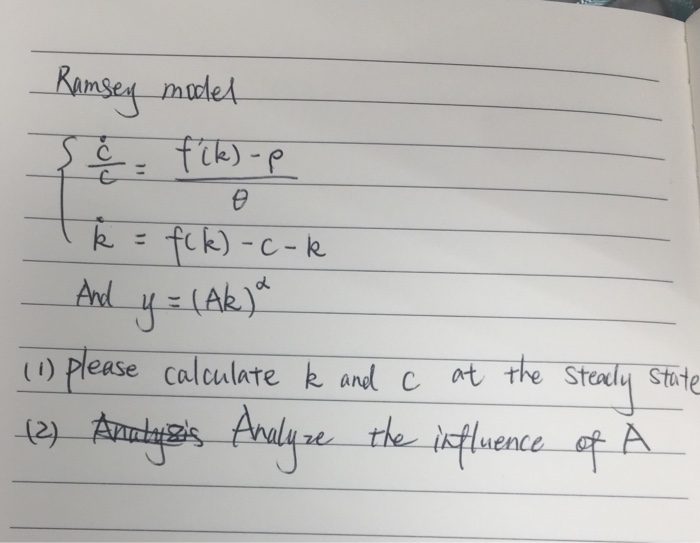 Ramsey model
ċ/c = f'(k) - ρ / θ
k̇ = f(k) - c - k
And y = (Ak)^α
(1) please calculate k and c at the steady state
(2) Analysis Analyze the influence of A